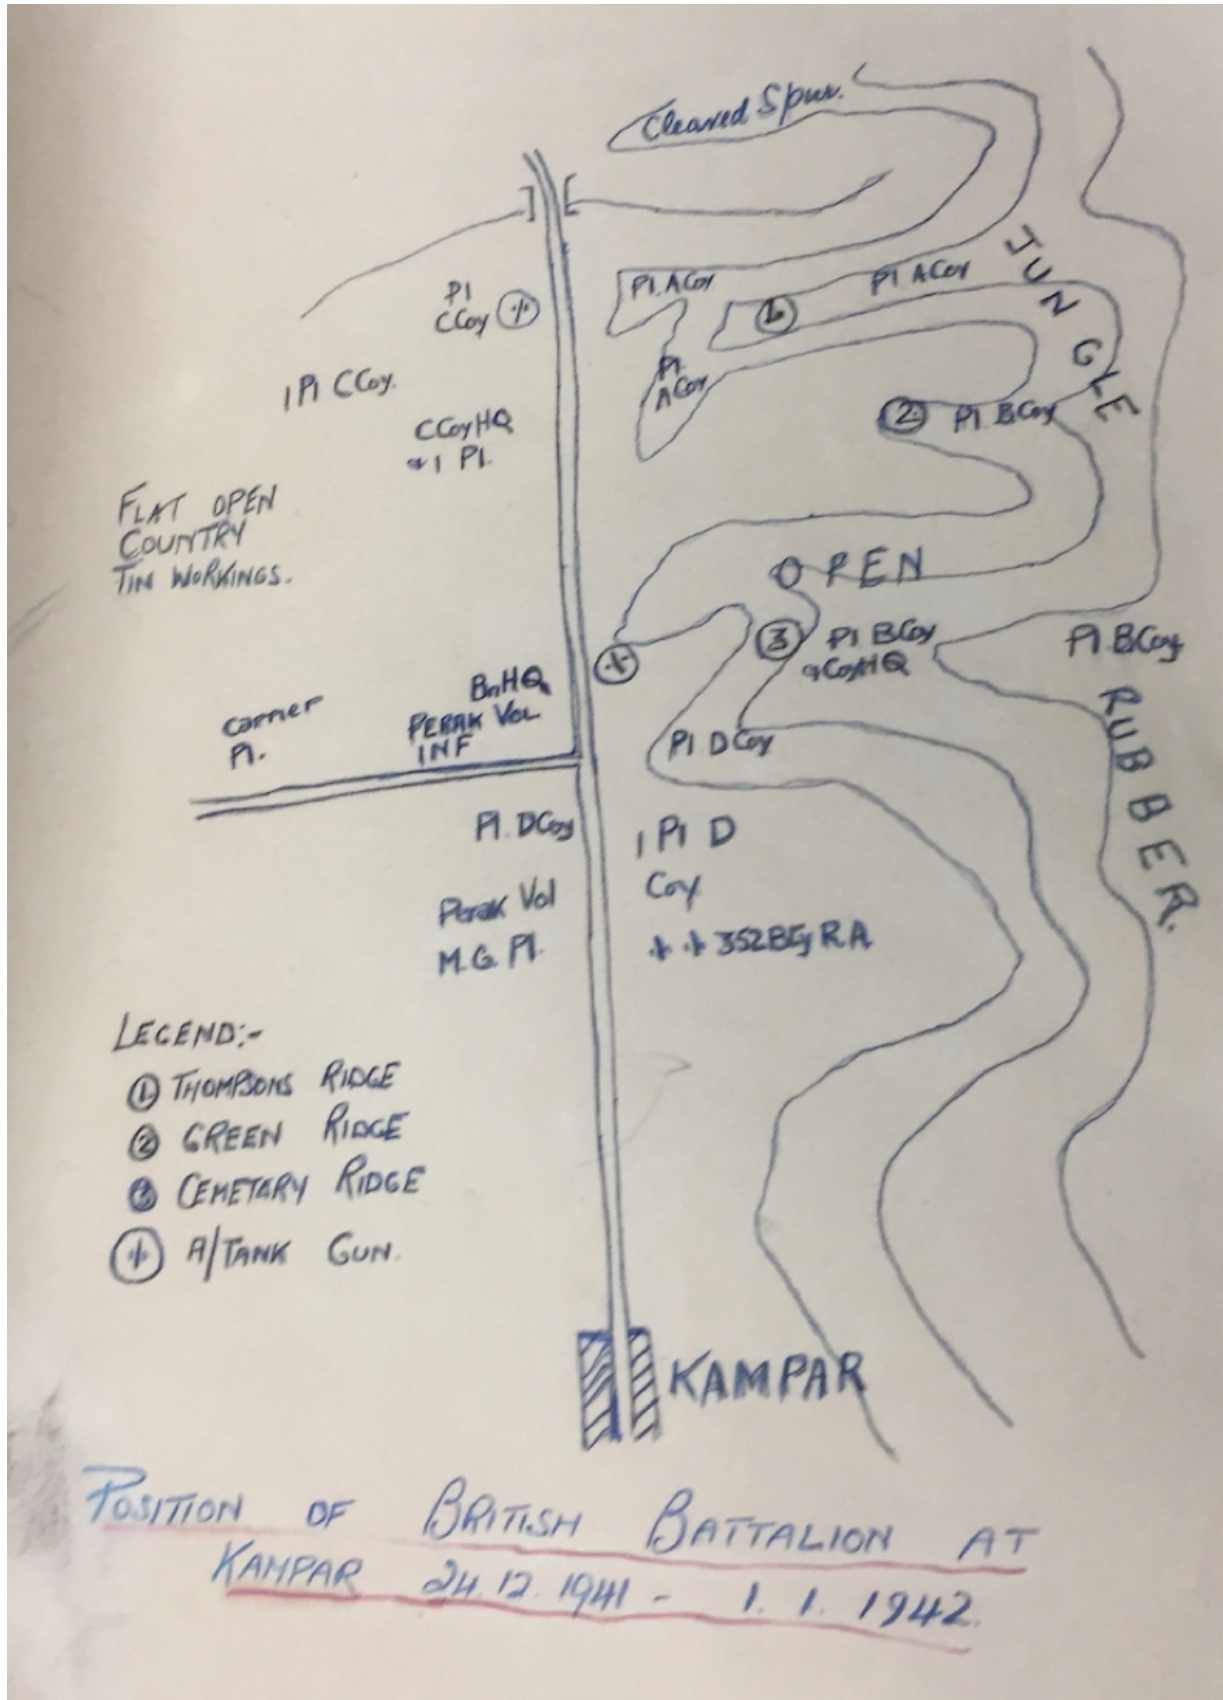 Cleared Spur.
JUNGLE
Pl. A Coy
Pl A Coy
Pl
C Coy
1
1 Pl C Coy.
Pl
A Coy
2
Pl. B Coy
C Coy HQ
& 1 Pl.
FLAT OPEN
COUNTRY
TIN WORKINGS.
OPEN
3
Pl B Coy
& Coy HQ
Pl. B Coy
RUBBER.
Bn HQ.
PERAK VOL
INF
Carrier
Pl.
Pl D Coy
Pl. D Coy
1 Pl D
Coy
Perak Vol
M.G. Pl.
352 Bty R.A
LEGEND:-
1 THOMPSONS RIDGE
2 GREEN RIDGE
3 CEMETARY RIDGE
A/TANK GUN.
KAMPAR
POSITION OF BRITISH BATTALION AT
KAMPAR 24.12.1941 - 1.1.1942.